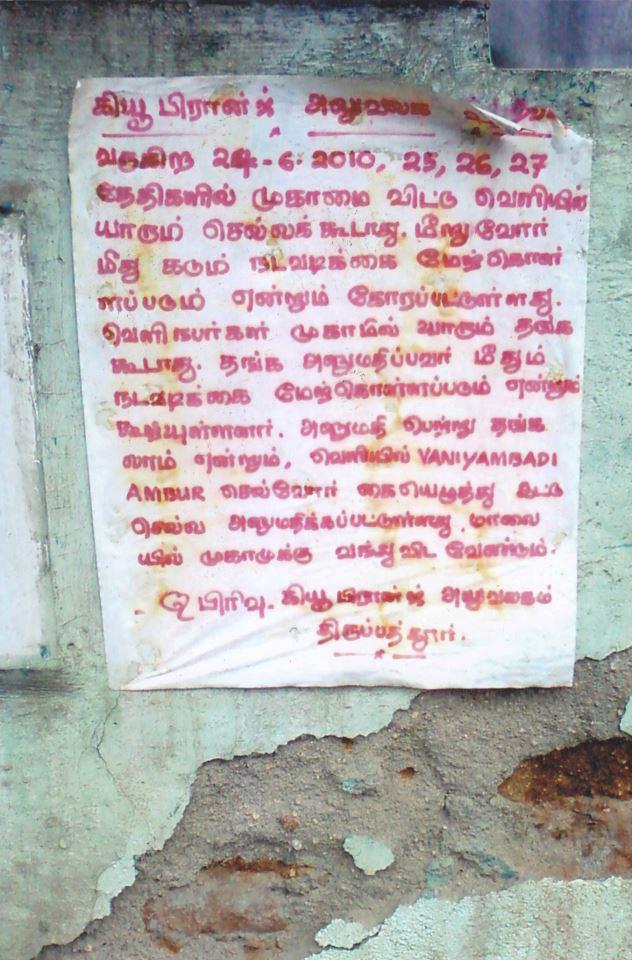 கியூ பிரான்ஞ் அலுவலக
வருகிற 24-6-2010, 25, 26, 27
தேதிகளில் முகாமை விட்டு வெளியில்
யாரும் செல்லக் கூடாது. மீறுவோர்
மிது கடும் நடவடிக்கை மேற்கொள்
ளப்படும் ஏன்றும் கோரப்பட்டுள்ளது.
வெளி நபர்கள் முகாமில் யாரும் தங்க
கூடாது. தங்க அனுமதிப்பவர் மீதும்
நடவடிக்கை மேற்கொள்ளப்படும் ஏன்றும்
கூறியுள்ளனார். அனுமதி பெற்று தங்க
லாம் ஏன்றும், வெளியில் VANIYAMBADI
AMBUR செல்வோர் கையெழுத்து இட்டு
செல்ல அனுமதிக்கப்பட்டுள்ளது. மாலை
யில் முகாமுக்கு வந்துவிட வேண்டும்.
Q பிரிவு. கியூ பிரான்ஞ் அலுவலகம்
திருப்பத்தூர்.